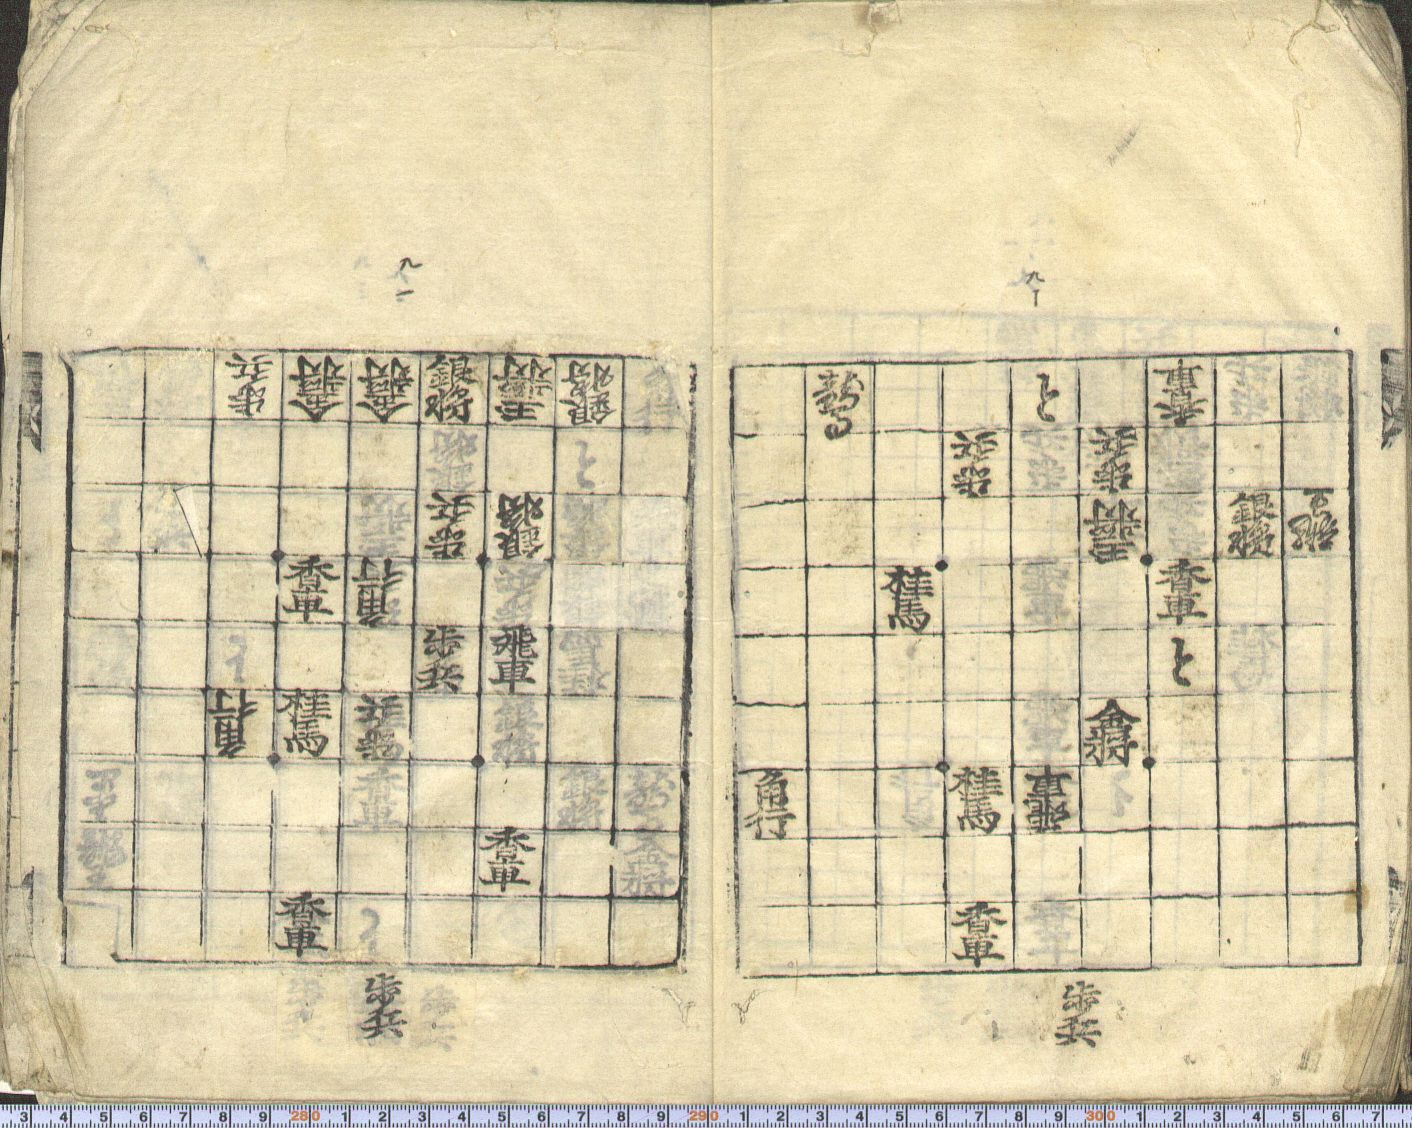 九十
と 香車
歩兵 歩兵
王将 銀将
桂馬 香車
と
金将
角行 桂馬 飛車
香車
歩兵
九一
歩兵 金将 金将 銀将 王将 銀将
歩兵 銀将
香車 角行
歩兵 飛車
角行 桂馬
香車
香車
歩兵
3 4 5 6 7 8 9 280 1 2 3 4 5 6 7 8 9 290 1 2 3 4 5 6 7 8 9 300 1 2 3 4 5 6 7